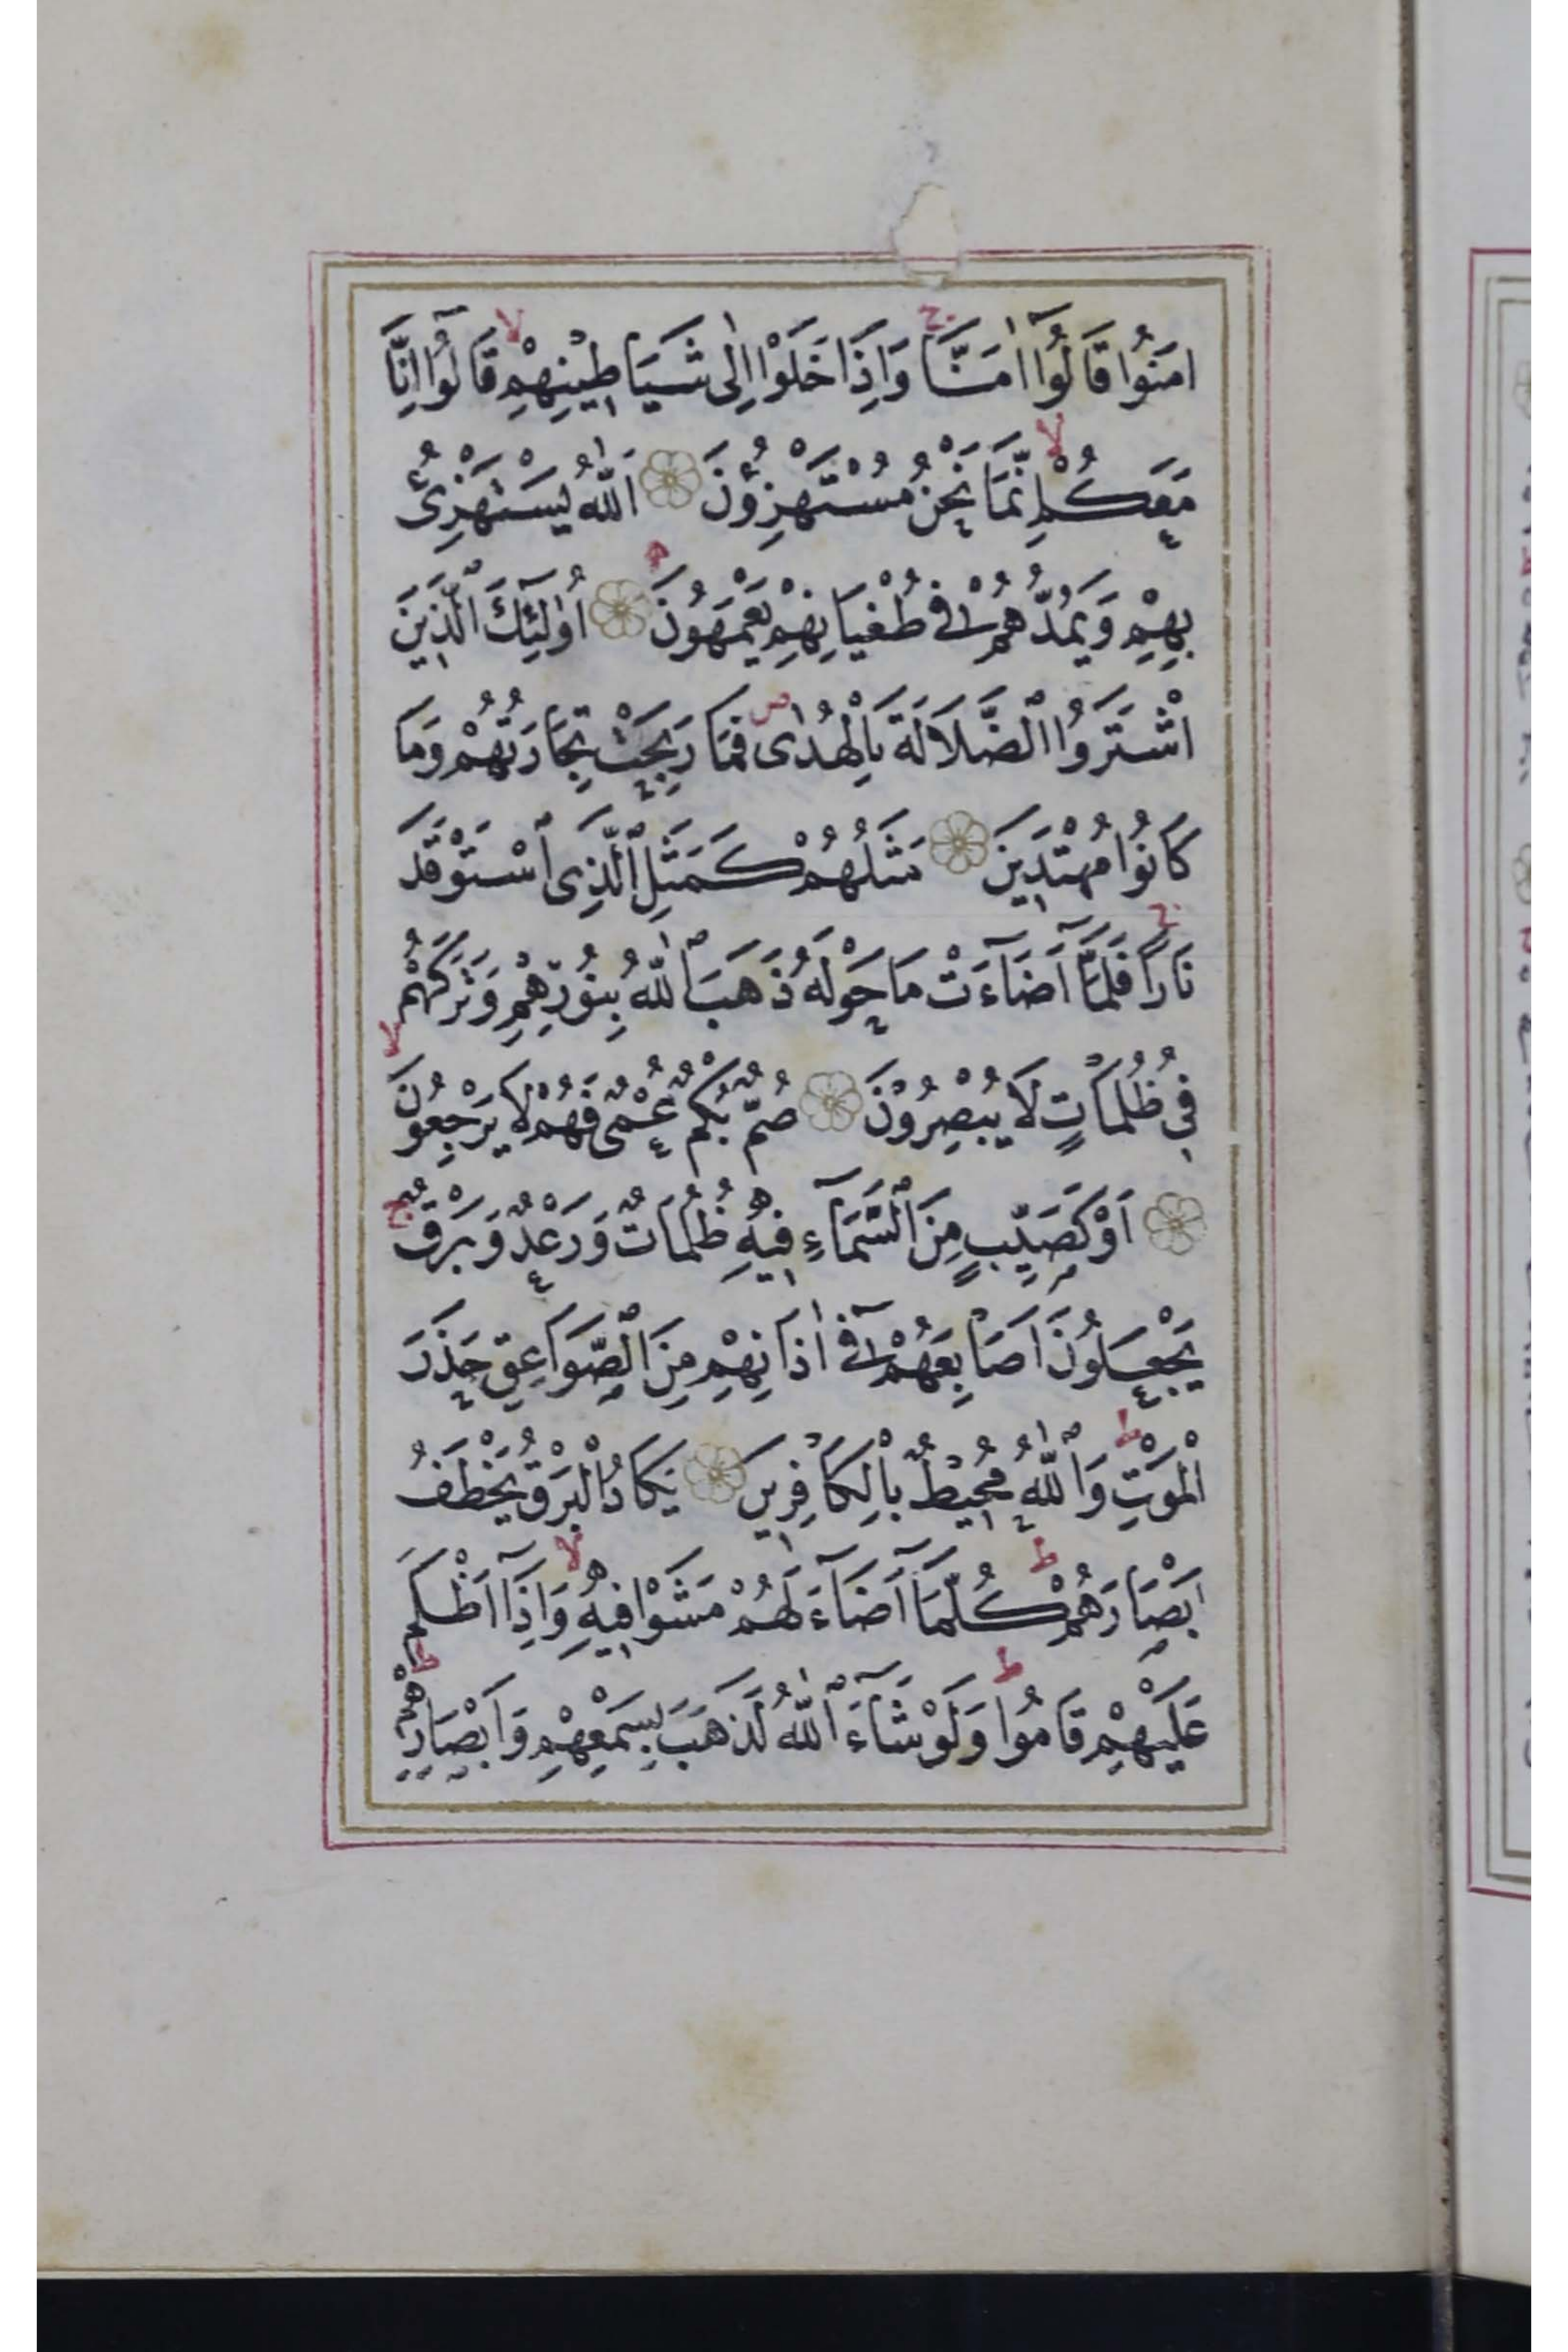 اٰمَنُوا قَالُٓوا اٰمَنَّاۚ وَاِذَا خَلَوْا اِلٰى شَيَاطِينِهِمْۙ قَالُٓوا اِنَّا
مَعَكُمْۙ اِنَّمَا نَحْنُ مُسْتَهْزِؤُنَ اَللّٰهُ يَسْتَهْزِئُ
بِهِمْ وَيَمُدُّهُمْ فِى طُغْيَانِهِمْ يَعْمَهُونَ اُولٰٓئِكَ الَّذِينَ
اشْتَرَوُا الضَّلَالَةَ بِالْهُدٰىۖ فَمَا رَبِحَتْ تِجَارَتُهُمْ وَمَا
كَانُوا مُهْتَدِينَ مَثَلُهُمْ كَمَثَلِ الَّذِى اسْتَوْقَدَ
نَارًاۚ فَلَمَّٓا اَضَٓاءَتْ مَا حَوْلَهُ ذَهَبَ اللّٰهُ بِنُورِهِمْ وَتَرَكَهُمْ
فِى ظُلُمَاتٍ لَا يُبْصِرُونَ صُمٌّ بُكْمٌ عُمْىٌ فَهُمْ لَا يَرْجِعُونَۙ
اَوْ كَصَيِّبٍ مِنَ السَّمَٓاءِ فِيهِ ظُلُمَاتٌ وَرَعْدٌ وَبَرْقٌۚ
يَجْعَلُونَ اَصَابِعَهُمْ فِٓى اٰذَانِهِمْ مِنَ الصَّوَاعِقِ حَذَرَ
الْمَوْتِۜ وَاللّٰهُ مُحِيطٌ بِالْكَافِرِينَ يَكَادُ الْبَرْقُ يَخْطَفُ
اَبْصَارَهُمْۜ كُلَّمَٓا اَضَٓاءَ لَهُمْ مَشَوْا فِيهِۙ وَاِذَٓا اَظْلَمَ
عَلَيْهِمْ قَامُواۜ وَلَوْ شَٓاءَ اللّٰهُ لَذَهَبَ بِسَمْعِهِمْ وَاَبْصَارِهِمْۜ